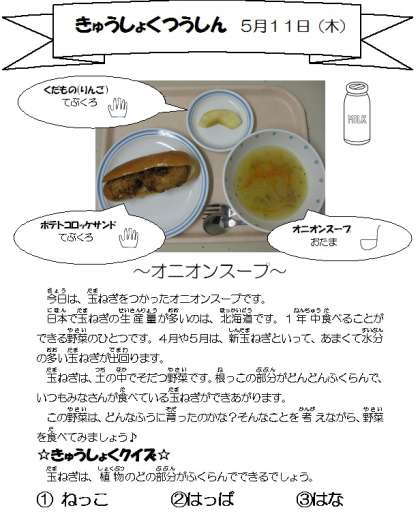 きゅうしょくつうしん ５月１１日（木）
くだもの(りんご)
てぶくろ
MILK
ポテトコロッケサンド
てぶくろ
オニオンスープ
おたま
～オニオンスープ～
今日は、玉ねぎをつかったオニオンスープです。
日本で玉ねぎの生産量が多いのは、北海道です。１年中食べることが
できる野菜のひとつです。４月や５月は、新玉ねぎといって、あまくて水分
の多い玉ねぎが出回ります。
玉ねぎは、土の中でそだつ野菜です。根っこの部分がどんどんふくらんで、
いつもみなさんが食べている玉ねぎができあがります。
この野菜は、どんなふうに育ったのかな？そんなことを考えながら、野菜
を食べてみましょう♪
☆きゅうしょくクイズ☆
玉ねぎは、植物のどの部分がふくらんでできるでしょう。
① ねっこ ②はっぱ ③はな